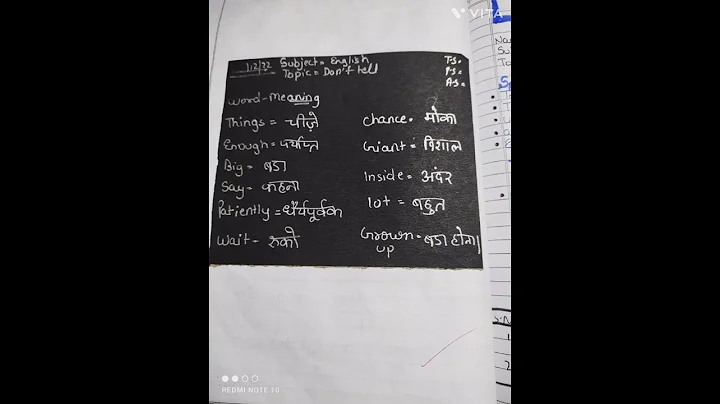 VITA
1/2/22 Subject = English
Topic = Don't tell
T.S.
P.S.
A.S.
Word-Meaning
Things = चीज़े
Enough = पर्याप्त
Big = बडा
Say = कहना
Patiently = धैर्यपूर्वक
Wait = रुको
Chance = मोका
Giant = विशाल
Inside = अंदर
lot = बहुत
Grown = बडा होना
up
REDMI NOTE 10